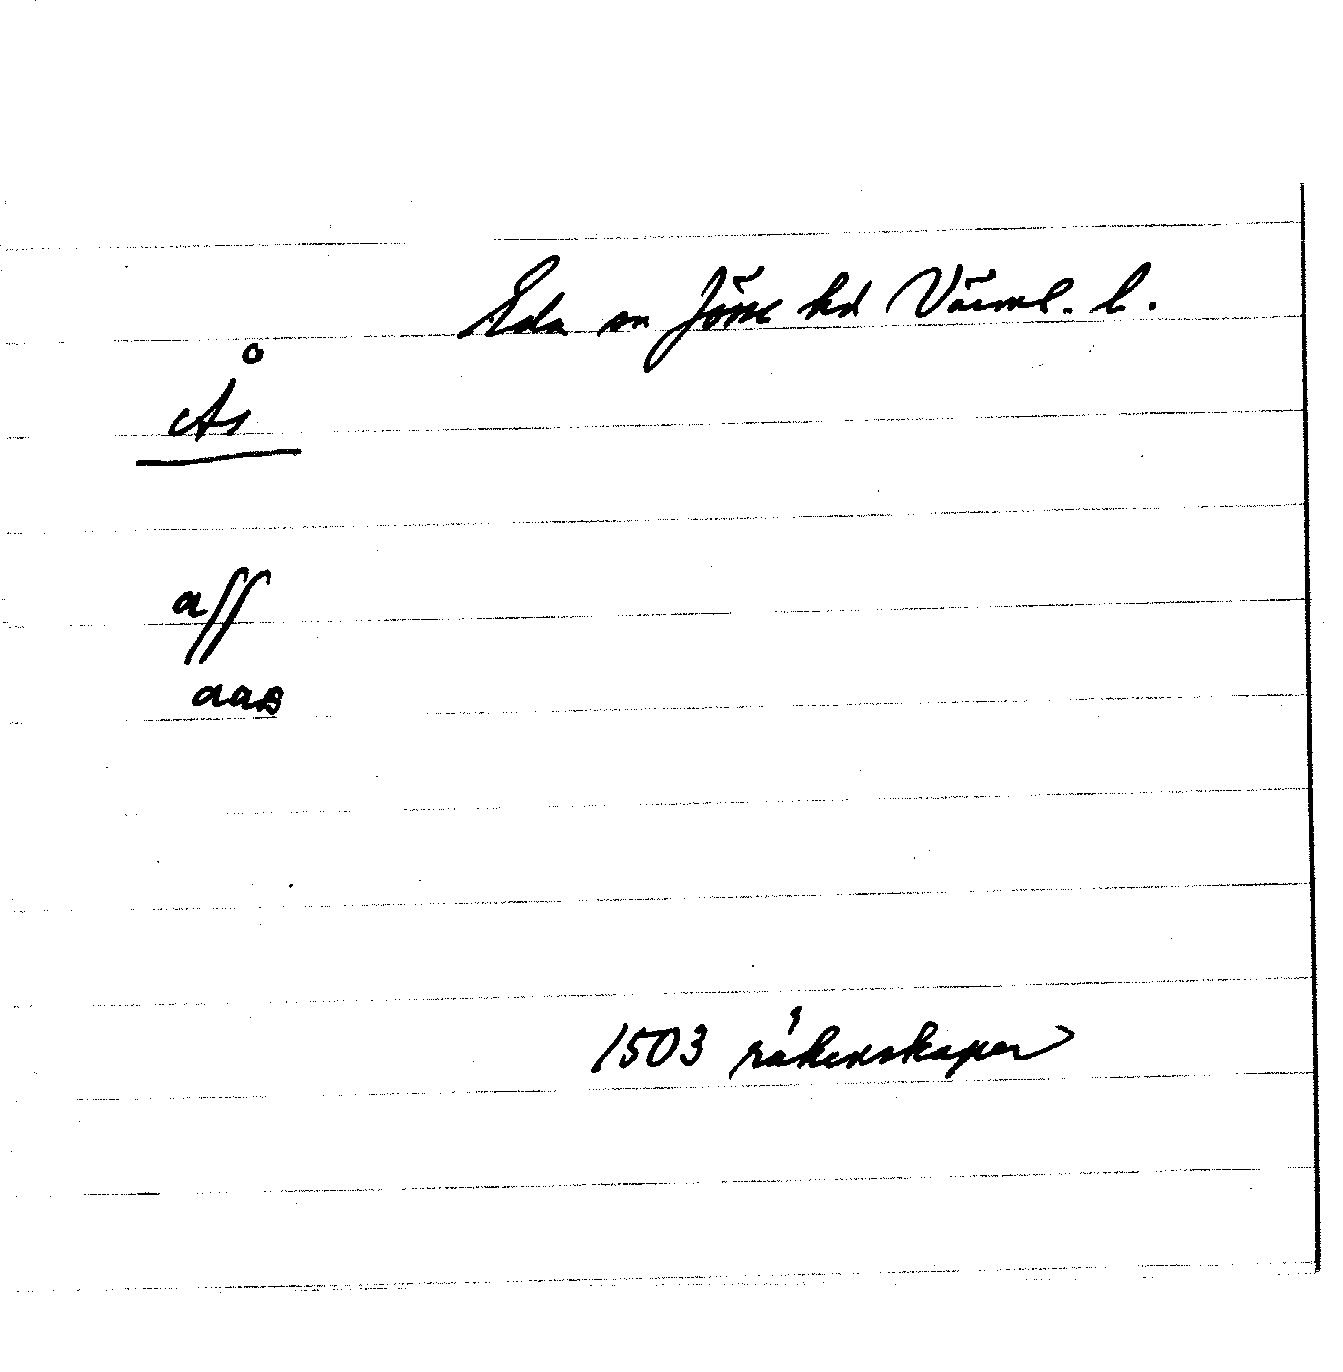 Eda sn Jösse hd Värml. l.
Ås
aff
aas
1503 räkenskaper